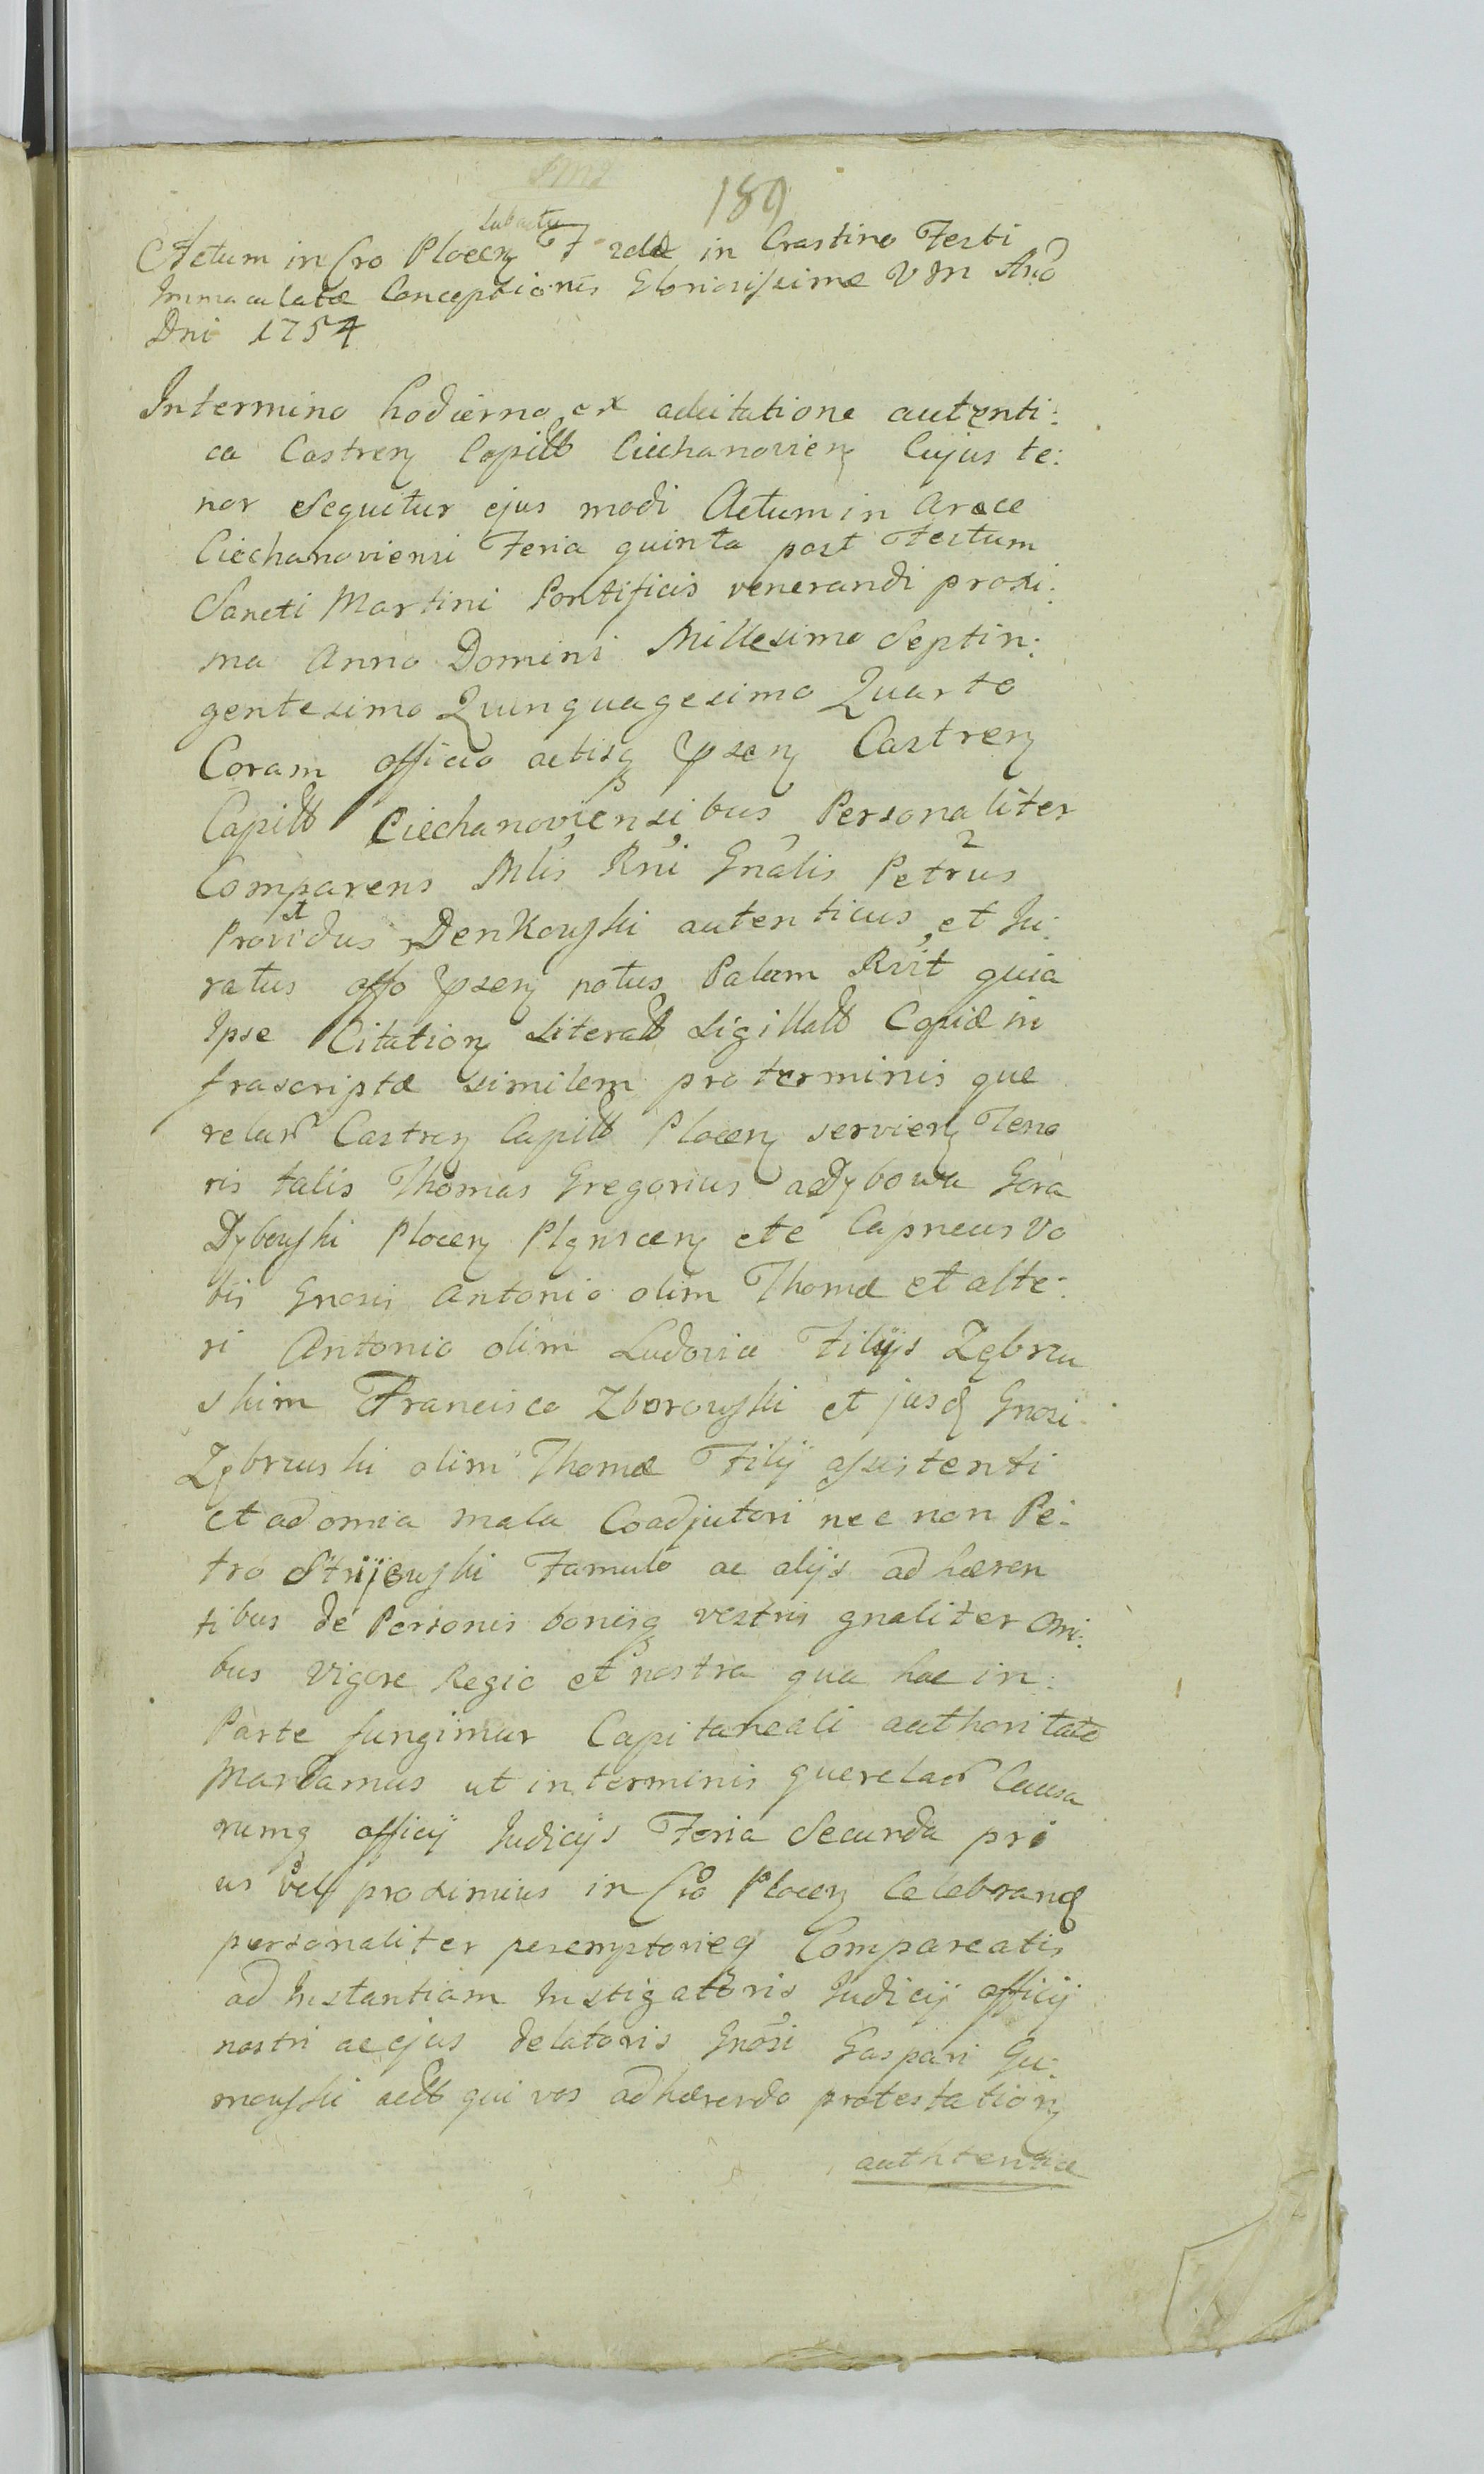 189
subactu
Actum in Cro Plocen F 2da in Crastino Festi
Immaculatæ Conceptionis Gloriosissimæ V M Ano
Dni 1754
Intermino hodierno ex adcitatione autenti:
ca Castren Capitt Ciechanovien Cujus te:
nor Sequitur ejus modi Actum in Arce
Ciechanoviensi Feria quinta post Festum
Sancti Martini Pontificis venerandi proxi:
ma Anno Domini Millesimo Septin:
gentesimo Quinquagesimo Quarto
Coram officio actisq psen Castren
Capitt Ciechanoviensibus Personaliter
Comparens Mlis Rni Gnalis Petrus
Providus Denkowski autenticus et Ju:
ratus offo psen notus Palam Rvit quia
Ipse Citation Literatt Sigillatt Copiæ in
frascriptæ similem pro terminis que
relar Castren Capitt Plocen servien Teno
ris talis Thomas Gregorius a Dybowa Gora
Dybowski Plocen Plonscen etc Capneus Vo
bis Gnosis Antonio olim Thomæ et alte:
ri Antonio olim Ludovici Filijs Zębrzu
skim Francisco Zborowski et jusd Gnosi
Zębrzuski olim Thomæ Filij assistenti
et ad omia mala Coadjutori nec non Pe:
tro Stryjewski Famulo ac alijs adhæren
tibus de Personis bonisq vestris gnaliter omi:
bus Vigore Regia et nostra qua hac in:
Parte fungimur Capitaneali authoritate
Mandamus ut in terminis querelar Causa
rumq officij Judicijs Feria Secunda pri
us vel proximius in Cro Plocen Celebrand
personaliter peremptorieq Compareatis
ad Instantiam Instigatoris Judicij officij
nostri ac ejus delatoris Gnosi Gaspari Gu:
mowski actt qui vos adhærendo protestation
authtenticæ